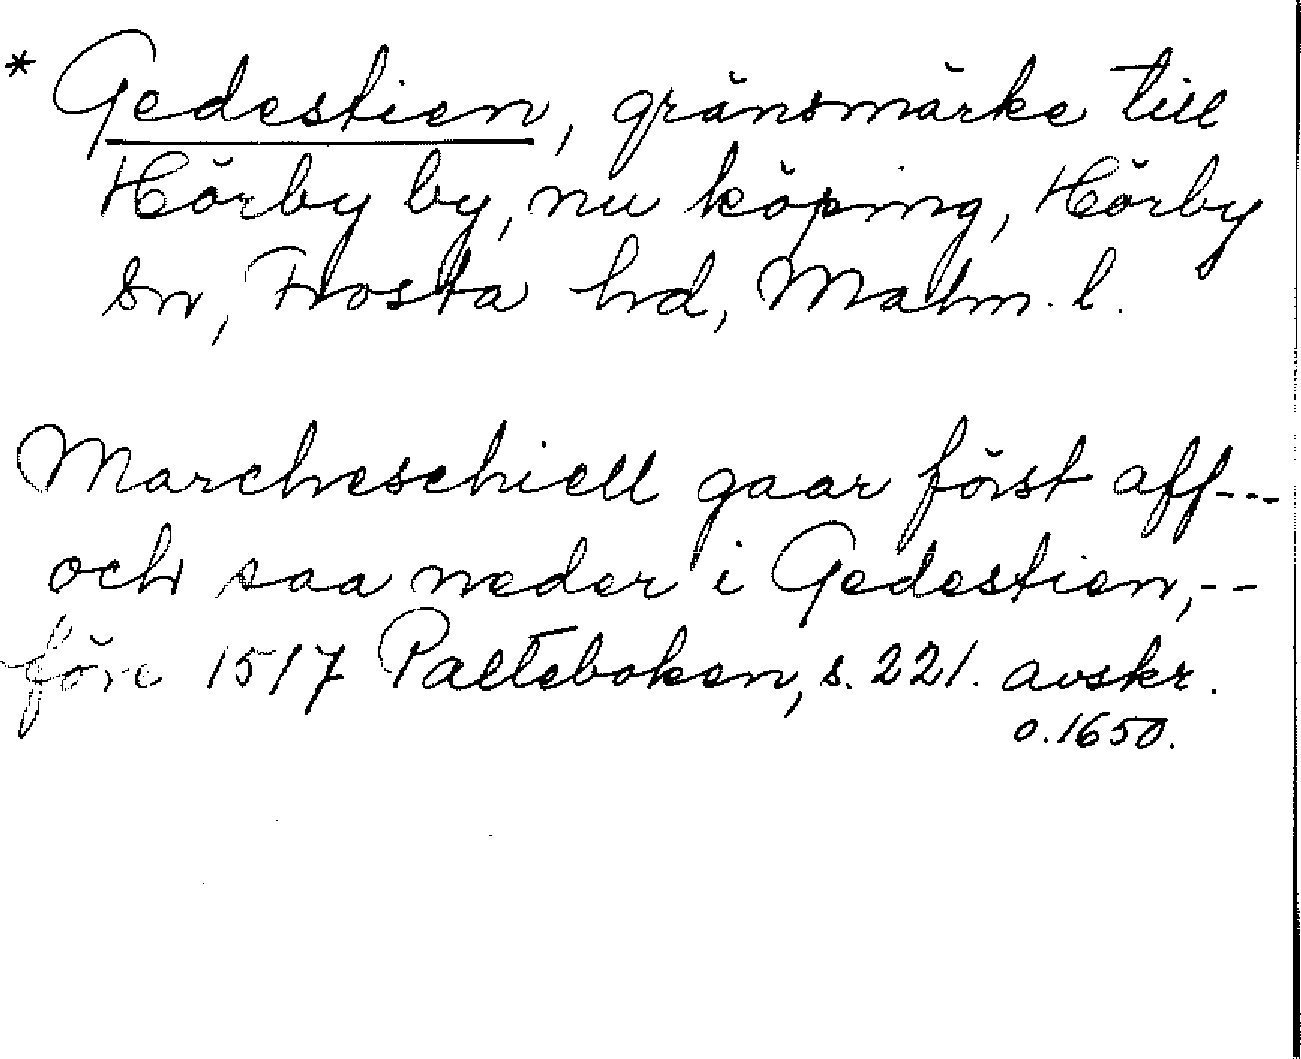 * Gedestien, gränsmärke till
Hörby by, nu köping, Hörby
sn, Frosta hd, Malm. l.
Marcheschiell gaar först aff---
och saa neder i Gedestien,--
före 1517 Palteboken, s. 221. avskr.
o. 1650.